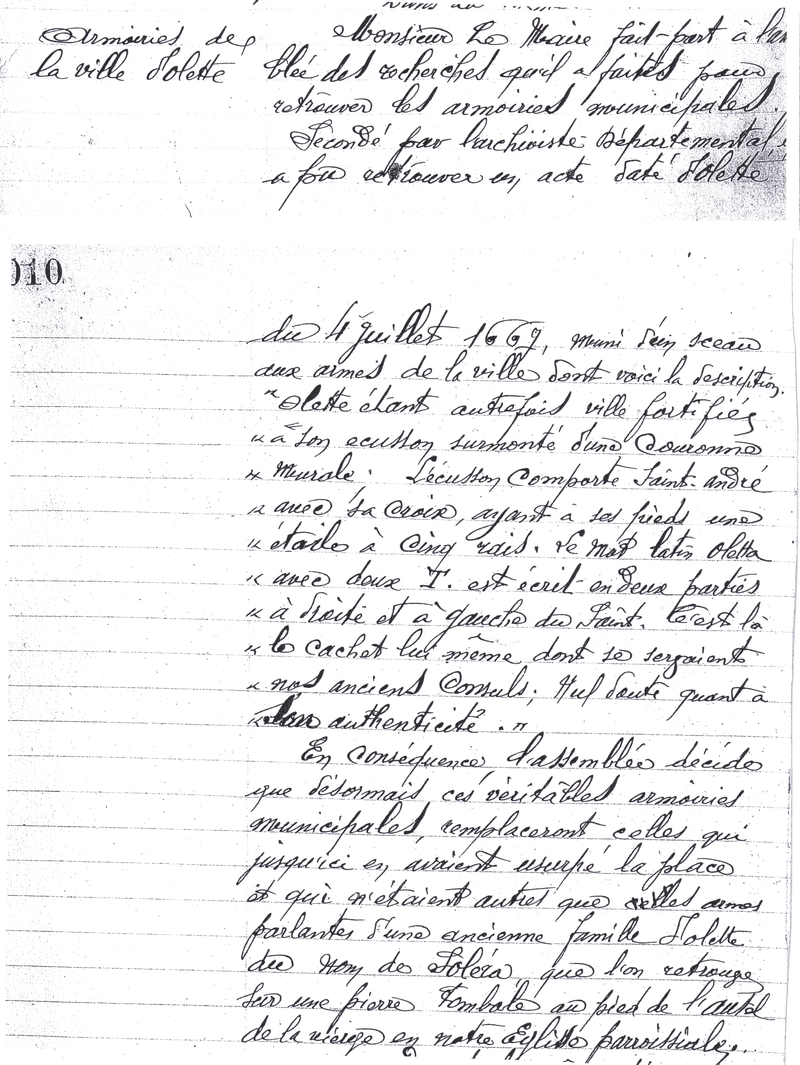 Armoiries de
la ville d'olette
Monsieur Le Maire fait-part à l'as
blée des recherches qu'il a faites pour
retrouver les armoiries municipales.
Secondé par l'archiviste Départemental
a pu retrouver un acte daté d'olette
010
du 4 juillet 1667, muni d'un sceau
aux armes de la ville dont voici la description.
"Olette étant autrefois ville fortifiée
"a son ecusson surmonté d'une Couronne
"Murale. L'écusson Comporte Saint-andré
"avec sa Croix, ayant à ses pieds une
"étoile à Cinq rais. Le mot latin oletta
"avec deux T. est écrit en deux parties
"à droite et à gauche du Saint. C'est là
"le cachet lui même dont se servaient
"nos anciens Consuls; Nul doute quant à
"son authenticité."
En Conséquence l'assemblée décide
que désormais ces véritables armoiries
municipales, remplaceront celles qui
jusqu'ici en avaient usurpé la place
et qui n'étaient autres que celles armes
parlantes d'une ancienne famille d'olette
du nom de Soléra que l'on retrouve
sur une pierre Tombale au pied de l'autel
de la vierge en notre Eglise parroissiale.